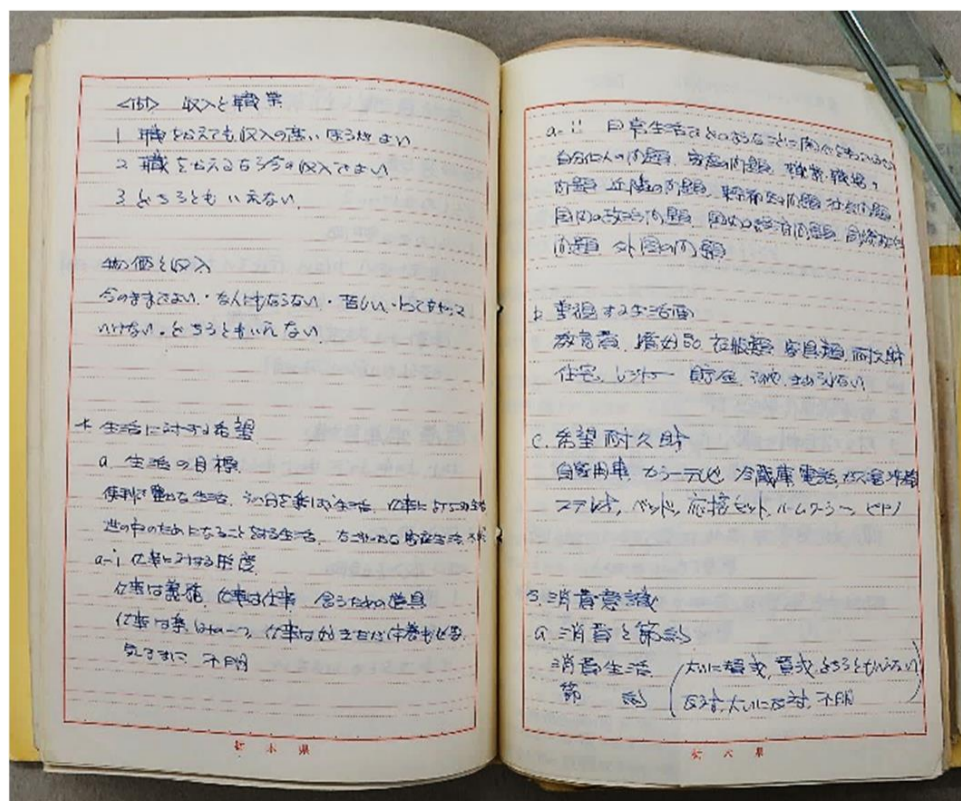 <151> 収入と職業
1 職をかえても収入の高いほうがよい
2 職をかえるなら今の収入でよい
3 どちらともいえない
物価と収入
今のままでよい・なんにもならない・苦しい・とてもやって
いけない。どちらともいえない
生活に対する希望
a 生活の目標
便利で豊かな生活、その日を楽しむ生活、仕事に
世の中のためになることをする生活、
a-i 仕事に対する態度
仕事は義務、仕事は仕事 食うための道具
仕事は楽しみの一つ、仕事は好きだが休養も必要、
気ままに 不明
栃木県
a-ii 日常生活でどのようなことに関心をもっているか
自分個人の問題、家庭の問題、職業・職場の
問題 近隣の問題、社会問題
国内の政治問題 国内の経済問題、国際政治
問題 外国の問題
b 重視する生活面
教育費、衣服類 家具類 耐久財
住宅、レジャー 貯蓄、その他、きめられない
c. 希望耐久財
自家用車 カラーテレビ 冷蔵庫 電話、
ステレオ、ベッド、応接セット、ルームクーラー、ピアノ
5. 消費意識
a 消費と節約
消費生活 (大いに賛成、賛成、どちらともいえない
節 約 反対、大いに反対、不明)
栃木県